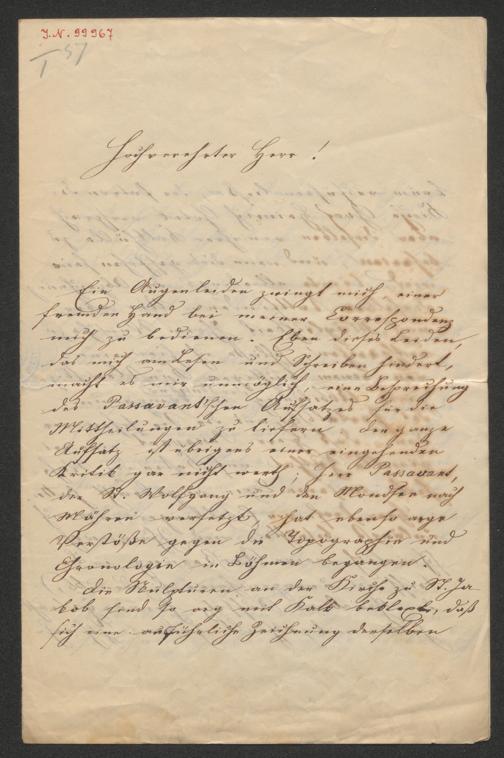 J.N. 99967
I 57
Hochverehrter Herr!
Ein Augenleiden zwingt mich einer
fremden Hand bei meiner Correspondenz
mich zu bedienen. Eben dieses Leiden,
das mich am Lesen und Schreiben hindert,
macht es mir unmöglich, eine Besprechung
des Passavant'schen Aufsatzes für die
Mittheilungen zu liefern. Der ganze
Aufsatz ist übrigens einer eingehenden
Kritik gar nicht werth; Herr Passavant,
der St. Wolfgang und den Mondsee nach
Mähren versetzt, hat ebenso arge
Verstöße gegen die Topographie und
Chronologie in Böhmen begangen.
Die Skulpturen an der Kirche zu St. Ja
kob sind so arg mit Kalk beklext, daß
sich eine ausführliche Zeichnung derselben